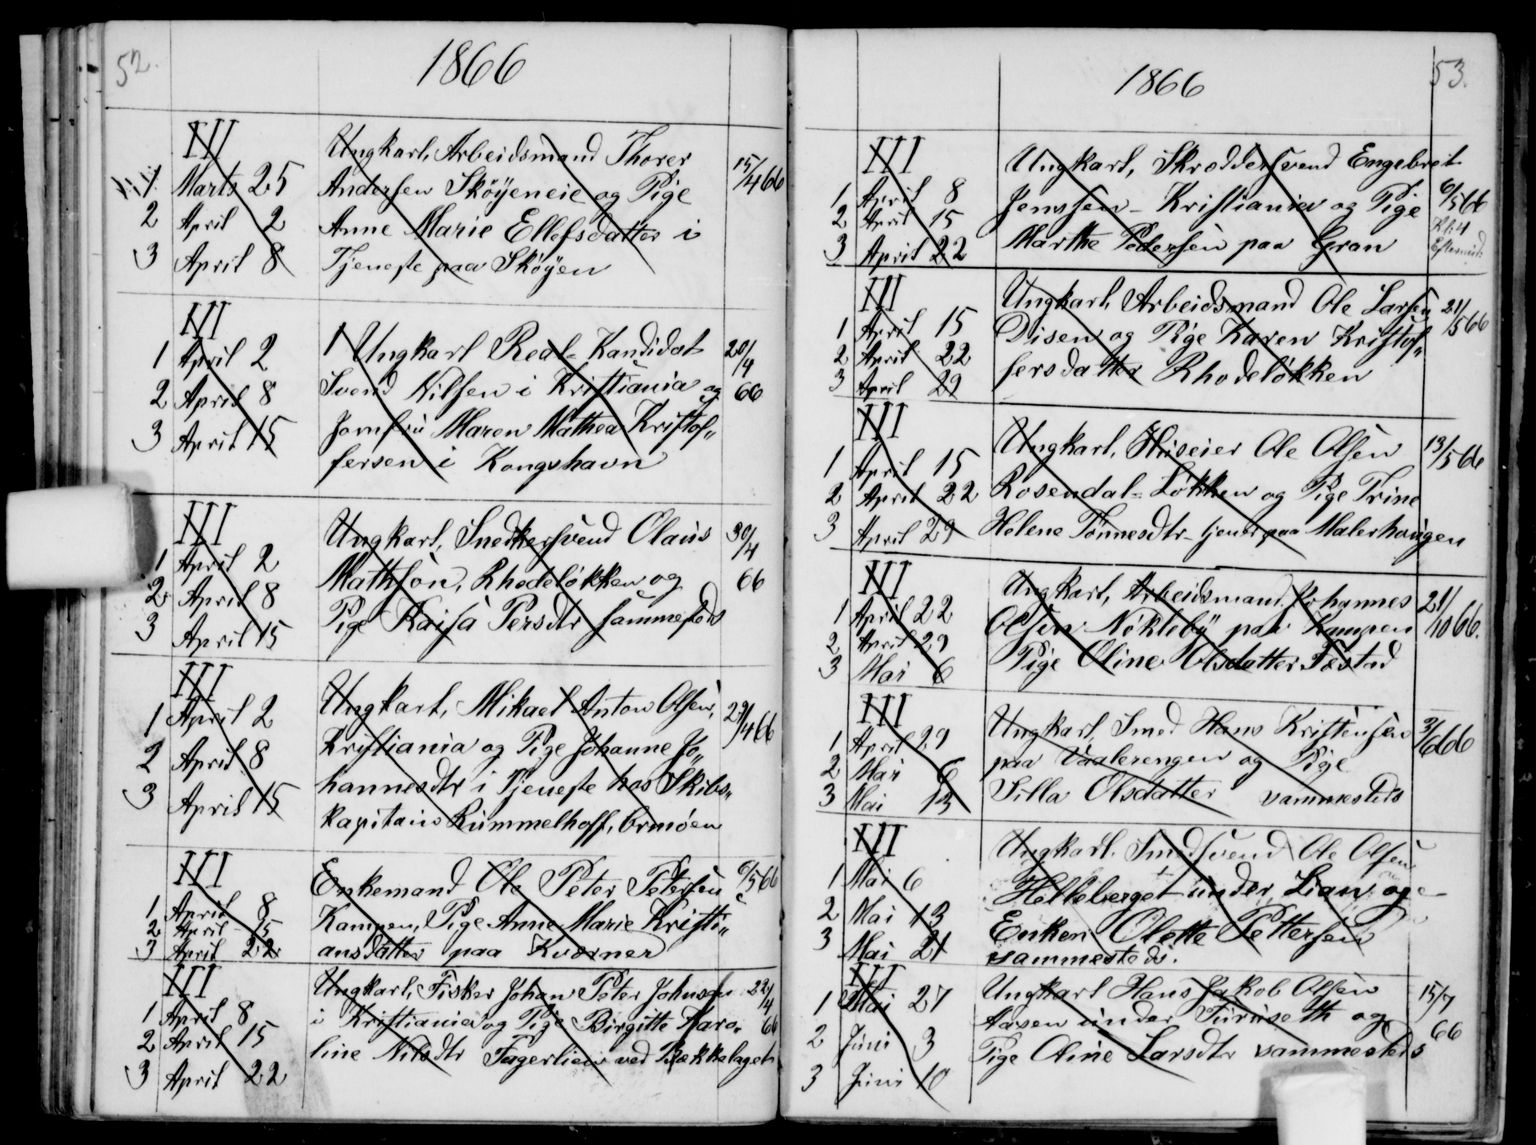 52.
1866
III
1 Marts 25
2 April 2
3 April 8
Ungkarl, Arbeidsmand Thorer
Andersen Skøyeneie og Pige
Anne Marie Ellefsdatter i
Tjeneste paa Skøyen
15/4 66
III
1 April 2
2 April 8
3 April 15
Ungkarl Real-Kandidat
Svend Nilsen i Kristiania og
Jomfru Maren Mathea Kristof„
fersen i Kongshavn
20/4
66
III
1 April 2
2 April 8
3 April 15
Ungkarl, Snedkersvend Olaus
Mathson, Rhodeløkken og
Pige Kaisa Persdtr sammesteds
30/4
66
III
1 April 2
2 April 8
3 April 15
Ungkarl, Mikael Anton Olsen,
Kristiania og Pige Johanne Jo„
hannesdtr i Tjeneste hos Skibs„
kapitain Rummelhoff, Ormøen
29/4 66
III
1 April 8
2 April 15
3 April 22
Enkemand Ole Peter Petersen
Kampen, Pige Anne Marie Kristi„
ansdatter paa Kværner
6/5 66
III
1 April 8
2 April 15
3 April 22
Ungkarl, Fisker Johan Peter Johnsen
i Kristiania og Pige Birgitte Karo„
line Nilsdtr Fagerlien ved Bækkelaget
22/4
66
53.
1866
III
1 April 8
2 April 15
3 April 22
Ungkarl, Skreddersvend Engebret
Jenssen - Kristiania og Pige
Marthe Pedersen paa Gran
6/5 66
Kl: 4
III
1 April 15
2 April 22
3 April 29
Ungkarl, Arbeidsmand Ole Larsen
Disen og Pige Karen Kristof„
fersdatter Rhodeløkken
21/5 66
III
1 April 15
2 April 22
3 April 29
Ungkarl, Huseier Ole Olsen
Rosendal-Løkken og Pige Trine
Helene Tønnesdtr tjener paa Malerhaugen
13/5 66
III
1 April 22
2 April 29
3 Mai 6
Ungkarl, Arbeidsmand Johannes
Olsen Nøkleby paa Kampen
Pige Oline Olsdatter Fostad
21/10 66.
III
1 April 29
2 Mai 6
3 Mai 13
Ungkarl, Smed Hans Kristensen
paa Vaalerengen og Pige
Silla Olsdatter sammesteds
3/6 66
III
1 Mai 6
2 Mai 13
3 Mai 21
Ungkarl. Smedsvend Ole Olsen
Helleberget under Lian og
Enken Olette Pettersen
sammesteds.
III
1 Mai 27
2 Juni 3
3 Juni 10
Ungkarl Hans Jakob Olsen
Aasen under Furuseth og
Pige Oline Larsdtr sammesteds
15/7
66